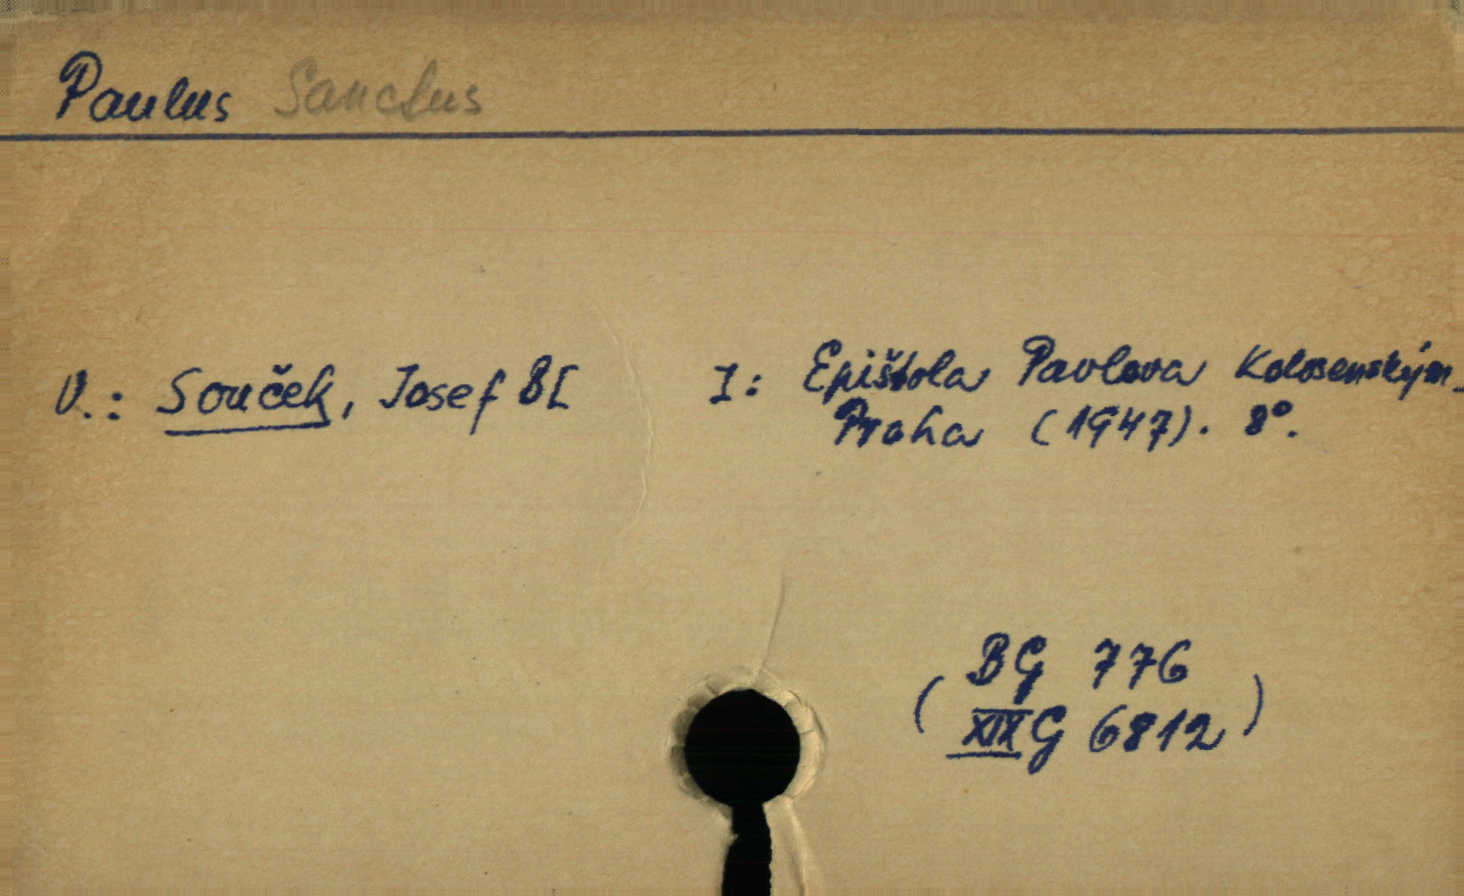 Paulus Sanctus
V.: Souček, Josef B[ I: Epištola Pavlova Kolosenským.
Praha (1947). 8°.
( BG 776
XIX G 6812 )